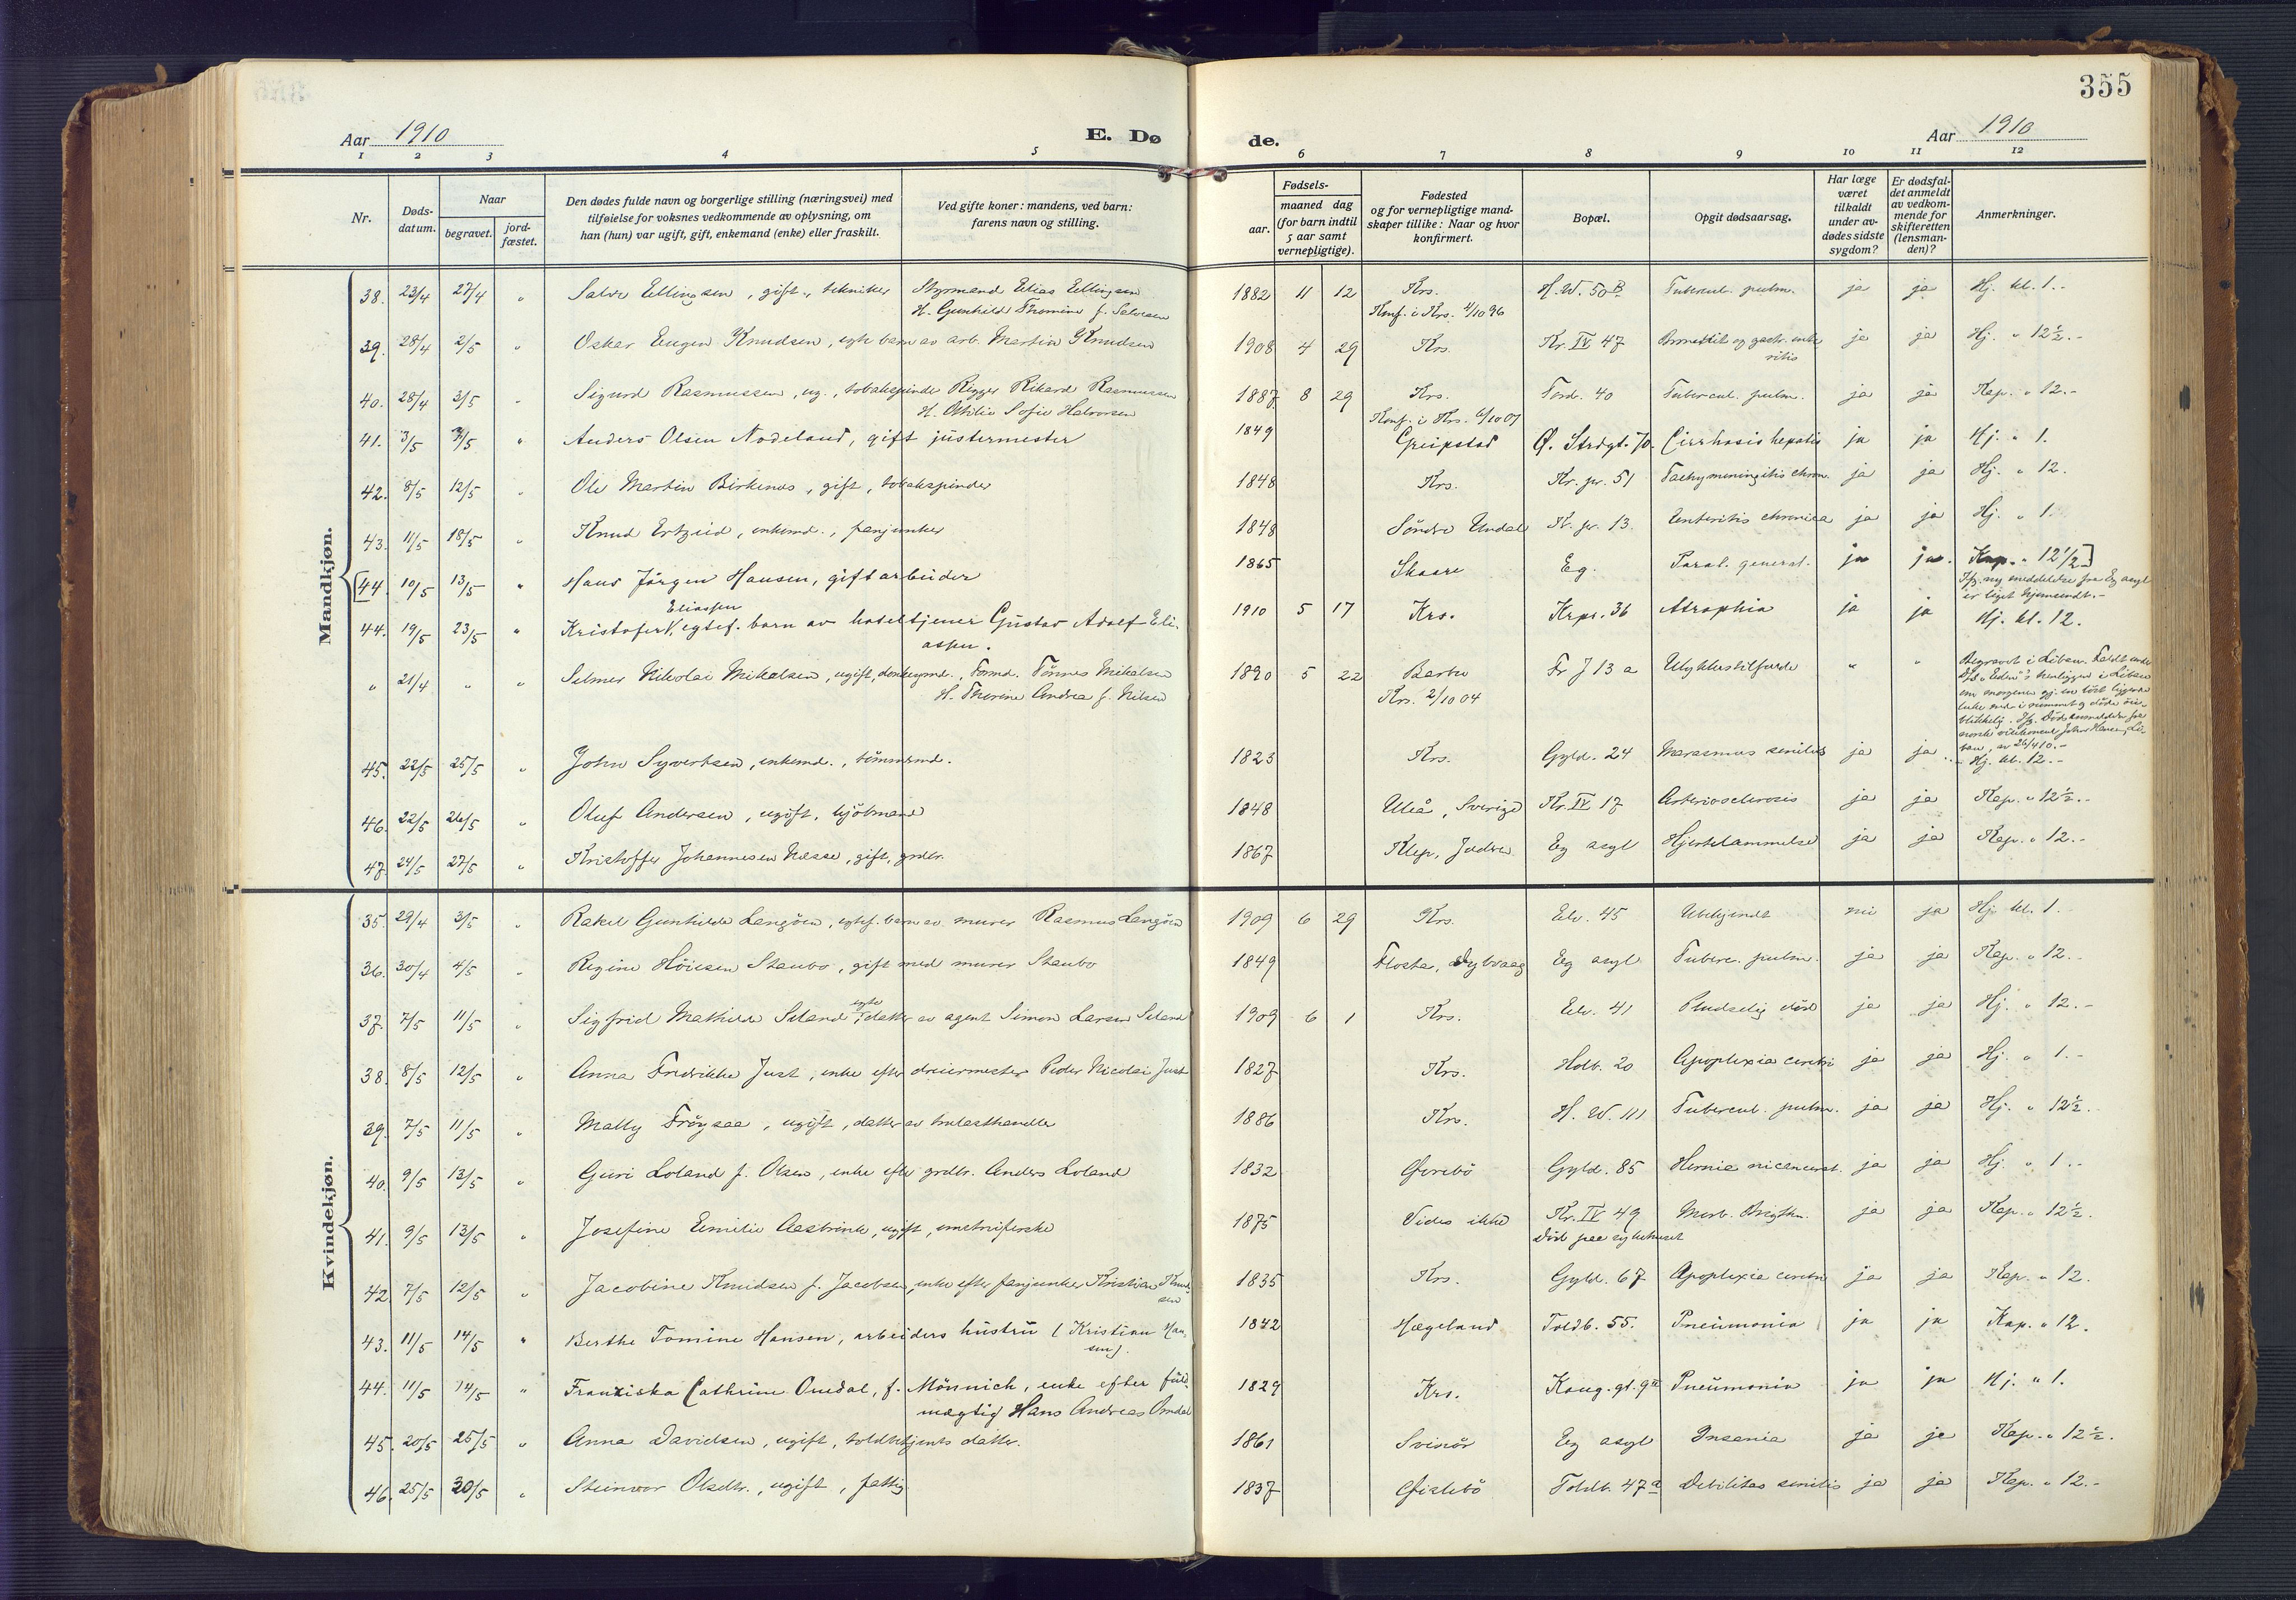 355
Aar 1910
E. Dø
de.
Aar 1910
1 2 3 4 5 6 7 8 9 10 11 12
Nr.
Døds-
datum.
Naar
begravet.
jord-
fæstet.
Den dødes fulde navn og borgerlige stilling (næringsvei) med
tilføielse for voksnes vedkommende av oplysning, om
han (hun) var ugift, gift, enkemand (enke) eller fraskilt.
Ved gifte koner: mandens, ved barn:
farens navn og stilling.
Fødsels-
aar.
maaned dag
(for barn indtil
5 aar samt
vernepligtige).
Fødested
og for vernepligtige mand-
skaper tillike: Naar og hvor
konfirmert.
Bopæl.
Opgit dødsaarsag.
Har læge
været
tilkaldt
under av-
dødes sidste
sygdom?
Er dødsfal-
det anmeldt
av vedkom-
mende for
skifteretten
(lensman-
den)?
Anmerkninger.
Mandkjøn.
38. 23/4 27/4 " Salve Ellingsen, gift, tekniker Styrmand Elias Ellingsen 1882 11 12 Krs. H. W. 50 B Tubercul. pulm. ja ja Hj. kl. 1.-
H. Gunhilde Thomine f. Salvesen Konf. i Krs. 4/10 96
39. 28/4 2/5 " Oskar Eugen Knudsen, egte barn av arb. Martin G Knudsen 1908 4 29 Krs. Kr. IV 47 og gastr. ente ja ja Hj. " 12 1/2.-
ritis
40. 28/4 3/5 " Sigurd Rasmussen, ug., tobakspinder Rigger Rikard Rasmussen 1887 8 29 Krs. Tord. 40 Tubercul. pulm. ja ja Kap. " 12.-
H. Othilie Sofie Halvorsen Konf. i Krs.
41. 3/5 7/5 " Anders Olsen Nodeland, gift justermester 1849 Greipstad Ø. Strdgt. 70. Cirrhosis hepatis ja ja Hj. " 1.
42. 8/5 12/5 " Ole Martin Birkenes, gift, tobakspinder 1848 Krs. Kr. pr. 51 Pachymeningitis chron. ja ja Hj. " 12.
43. 11/5 18/5 " Knud Ertzeid, enkemd., fanjunker 1848 Søndre Undal Kr. pr. 13. Enteritis chronica ja ja Hj. " 1.
[44. 10/5 13/5 " Hans Jörgen Hansen, gift arbeider 1865 Skaare Eg. Paral. general. ja ja. Kap. " 12 1/2]
Ifg. ny meddelelse fra Eg asyl
er liget hjemsendt.-
Eliassen
44. 19/5 23/5 " Kristofer N. egtef. barn av hoteltjener Gustav Adolf Eli- 1910 5 17 Krs. Krpr. 36 Atrophia ja ja Hj. kl. 12.
assen.
" 21/4 " " Selmer Nikolai Mikalsen, ugift, donkeymd., Formd. Tönnes Mikalsen 1890 5 22 Barbu Fr J 13 a Ulykkestilfælde " " Begravet i Libau. Faldt under
H. Thorine Andrea f. Nilsen Krs. 2/10 04
45. 22/5 25/5 " John Syvertsen, enkemd., tömmermd. 1823 Krs. Gyld. 24 Marasmus senilis ja ja Hj. kl. 12.-
46. 22/5 26/5 " Oluf Andersen, ugift, kjöbmand 1848 Uleå, Sverige Kr. IV 17 Arteriosclerosis ja ja Kap. " 12 1/2.-
47. 24/5 27/5 " Kristoffer Johannesen Næsse, gift, grdbr. 1867 Klep, Jædre Eg asyl Hjertelammelse ja ja Kap. " 12.-
Kvindekjøn.
35. 29/4 3/5 " Rakel Gunhilde Langöen, egtef. barn av murer Rasmus Langöen 1909 6 29 Krs. Elv. 45 Ubekjendt nei ja Hj. kl. 1.
36. 30/4 4/5 " Regine Höiesen Staubo, gift med murer Staubo 1849 Flosta, Dybvaag Eg asyl Tuberc. pulm. ja ja Kap. " 12.
egte
37. 7/5 11/5 " Sigfrid Mathilde Seland, datter av agent Simon Larsen Seland 1909 6 1 Krs. Elv. 41 Pludselig död ja ja Hj. " 12.-
38. 8/5 12/5 " Anna Fredrikke Just, enke efter dreiermester Peder Nicolai Just 1827 Krs. Holb. 20 Apoplexia cerebri ja ja Hj. " 1.-
39. 7/5 11/5 " Mally Fröysaa, ugift, datter av trælasthandler 1886 Krs. H. W. 111 Tubercul. pulm. ja ja Hj. " 12 1/2.
40. 9/5 13/5 " Guri Loland f. Olsen, enke efter grdbr. Anders Loland 1832 Øvrebö Gyld. 85 Hernia incarcerat. ja ja Hj. " 1.-
41. 9/5 13/5 " Josefine Emilie Aestrink, ugift, 1875 Vides ikke Kr. IV 49 Morb. Brigthii. ja ja Kap. " 12 1/2.
Död paa sykehuset
42. 7/5 12/5 " Jacobine Knudsen f. Jacobsen, enke efter fanjunker Kristian Knud- 1835 Krs. Gyld. 67 Apoplexia cerebri ja ja Kap. " 12.
sen
43. 11/5 14/5 " Berthe Tomine Hansen, arbeiders hustru (Kristian Han- 1842 Hægeland Toldb. 55. Pneumonia ja ja Kap. " 12.
sen).
44. 11/5 14/5 " Franziska Cathrine Omdal, f. Mönnich, enke efter fuld- 1829 Krs. Kong. gt. 9 Pneumonia ja ja Hj. " 1.
mægtig Hans Andreas Omdal
45. 20/5 25/5 " Anna Davidsen, ugift, toldbetjents datter. 1861 Svinör Eg asyl Insania ja ja Kap. " 12 1/2.
46. 25/5 30/5 " Steinvor Olsdtr., ugift, fattig 1837 Øislebö Toldb. 47 a Debilitas senilis ja ja Kap. " 12.-